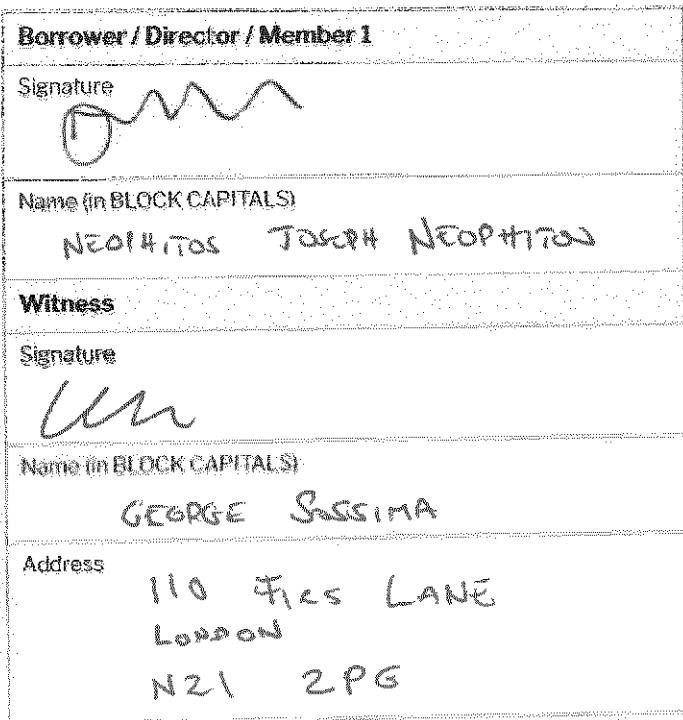 Borrower / Director / Member 1
Signature
Name (in BLOCK CAPITALS)
NEOPHITOS JOSEPH NEOPHITOU
Witness
Signature
Name (in BLOCK CAPITALS)
GEORGE SOSSIMA
Address
110 LANE
LONDON
N21 2PG